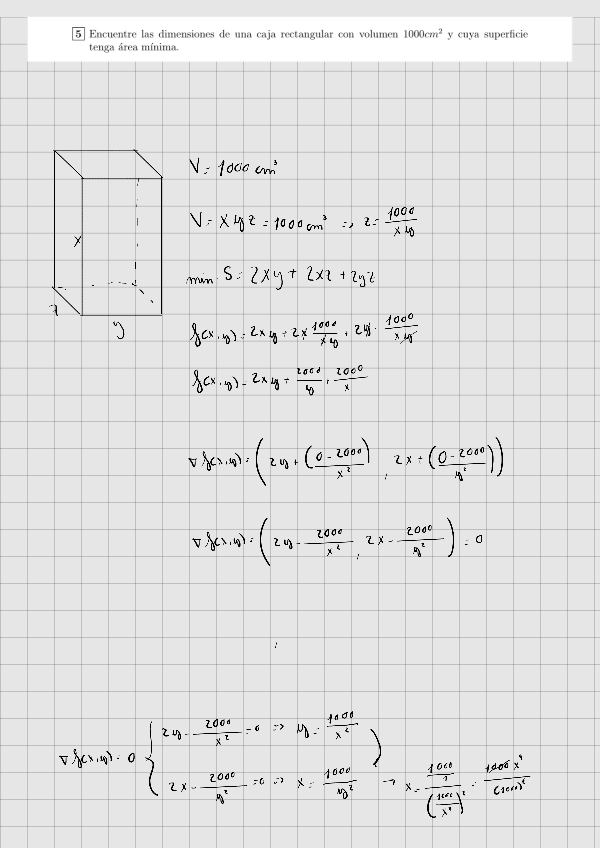 5 Encuentre las dimensiones de una caja rectangular con volumen 1000cm² y cuya superficie
tenga área mínima.
V = 1000 cm³
V = x y z = 1000 cm³ => z = 1000 / x y
x
min. S = 2xy + 2xz + 2yz
z
y
f(x,y) = 2xy + 2x 1000 / x y + 2y · 1000 / x y
f(x,y) = 2xy + 2000 / y + 2000 / x
∇f(x,y) = ( 2y + ( 0 - 2000 / x² ) , 2x + ( 0 - 2000 / y² ) )
∇f(x,y) = ( 2y - 2000 / x² , 2x - 2000 / y² ) = 0
2y - 2000 / x² = 0 => y = 1000 / x²
∇f(x,y) = 0
2x - 2000 / y² = 0 => x = 1000 / y² → x = 1000 / 1 / ( 1000 / x² )² = 1000 x⁴ / (1000)²